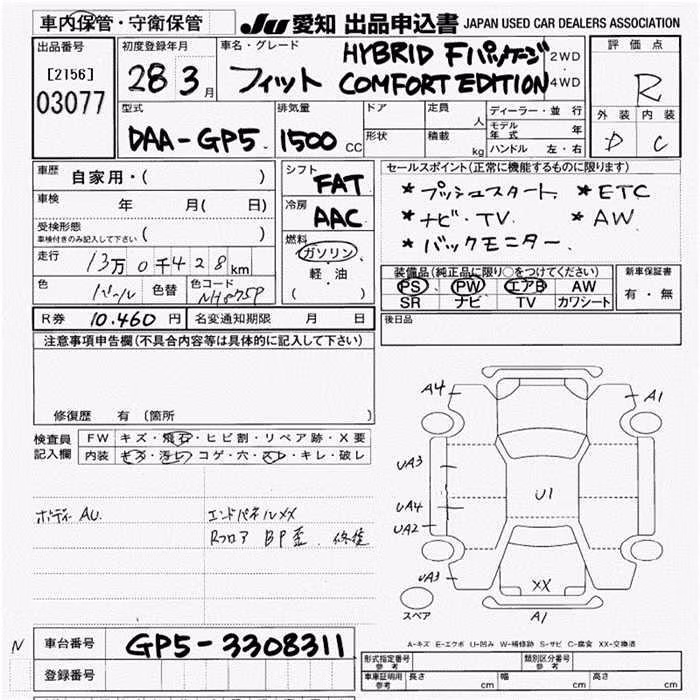 車内保管・守衛保管 JU 愛知 出品申込書 JAPAN USED CAR DEALERS ASSOCIATION
出品番号 [2156] 03077
初度登録年月 28 3月
車名・グレード フィット HYBRID Fパッケージ COMFORT EDITION 2WD 4WD
評価点 R
外装 内装
D C
型式 DAA-GP5
排気量 1500 CC
ドア 定員 人
形状 積載 kg
ディーラー・並行
モデル年式 年
ハンドル 左・右
車歴 自家用・( )
車検 年 月( 日)
受検形態 車検付きのみ記入して下さい ( )
走行 13万0千428km
色 色替 色コード NH875P
シフト FAT
冷房 AAC
燃料 ガソリン
軽・油
( )
セールスポイント(正常に機能するものに限ります)
*プッシュスタート *ETC
*ナビ・TV. *AW
*バックモニター.
装備品(純正品に限り○をつけてください)
PS PW エアB AW
SR ナビ TV カワシート
新車保証書
有・無
R券 10.460円 名変通知期限 月 日
後日品
注意事項申告欄(不具合内容等は具体的に記入して下さい)
修復歴 有(箇所 )
検査員記入欄
FW キズ・飛石・ヒビ割・リペア跡・X要
内装 キズ・汚レ・コゲ・穴・スレ・キレ・破レ
ボディーAU.
エンドパネルXX
Rフロア BP歪. 修復
A4 A1
UA3
UA4 U1
UA2
UA3 XX
スペア A1
A-キズ E-エクボ U-凹み W-補修跡 S-サビ C-腐食 XX-交換済
N 車台番号 GP5-3308311
登録番号
形式指定番号 参考
類別区分番号 参考
車庫証明用 参考 長さ cm 幅 cm 高さ cm